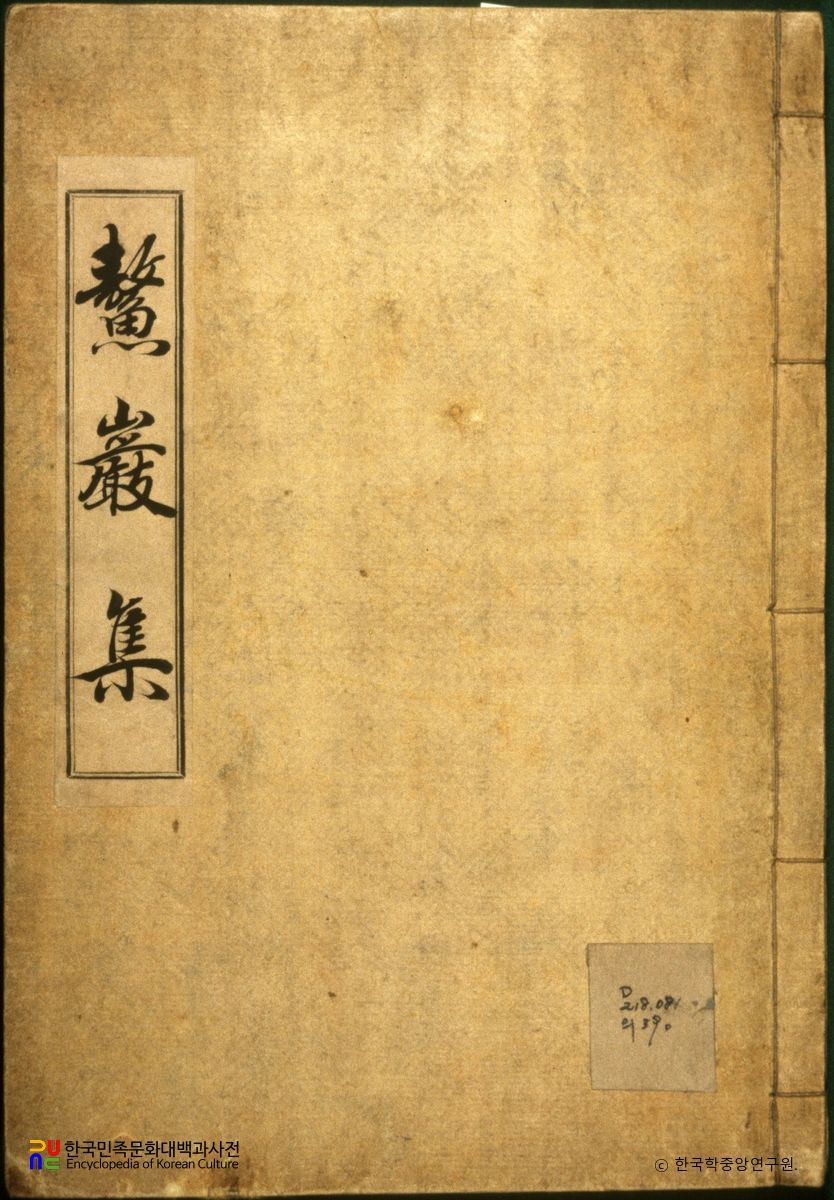 鰲巖集
D
218.081
의39
한국민족문화대백과사전
Encyclopedia of Korean Culture
© 한국학중앙연구원.